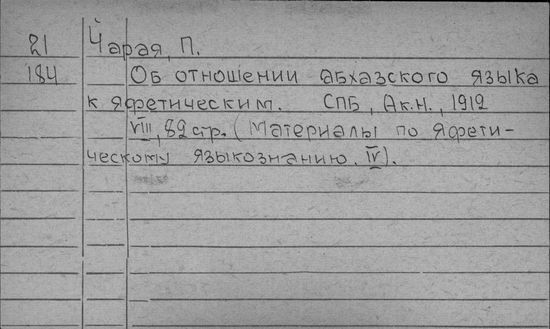 21 Чарая, П.
184 Об отношении абхазского языка
к яфетическим. СПБ, Ак.Н., 1912
VIII, 82 стр. (Материалы по яфети-
ческому языкознанию. IV).